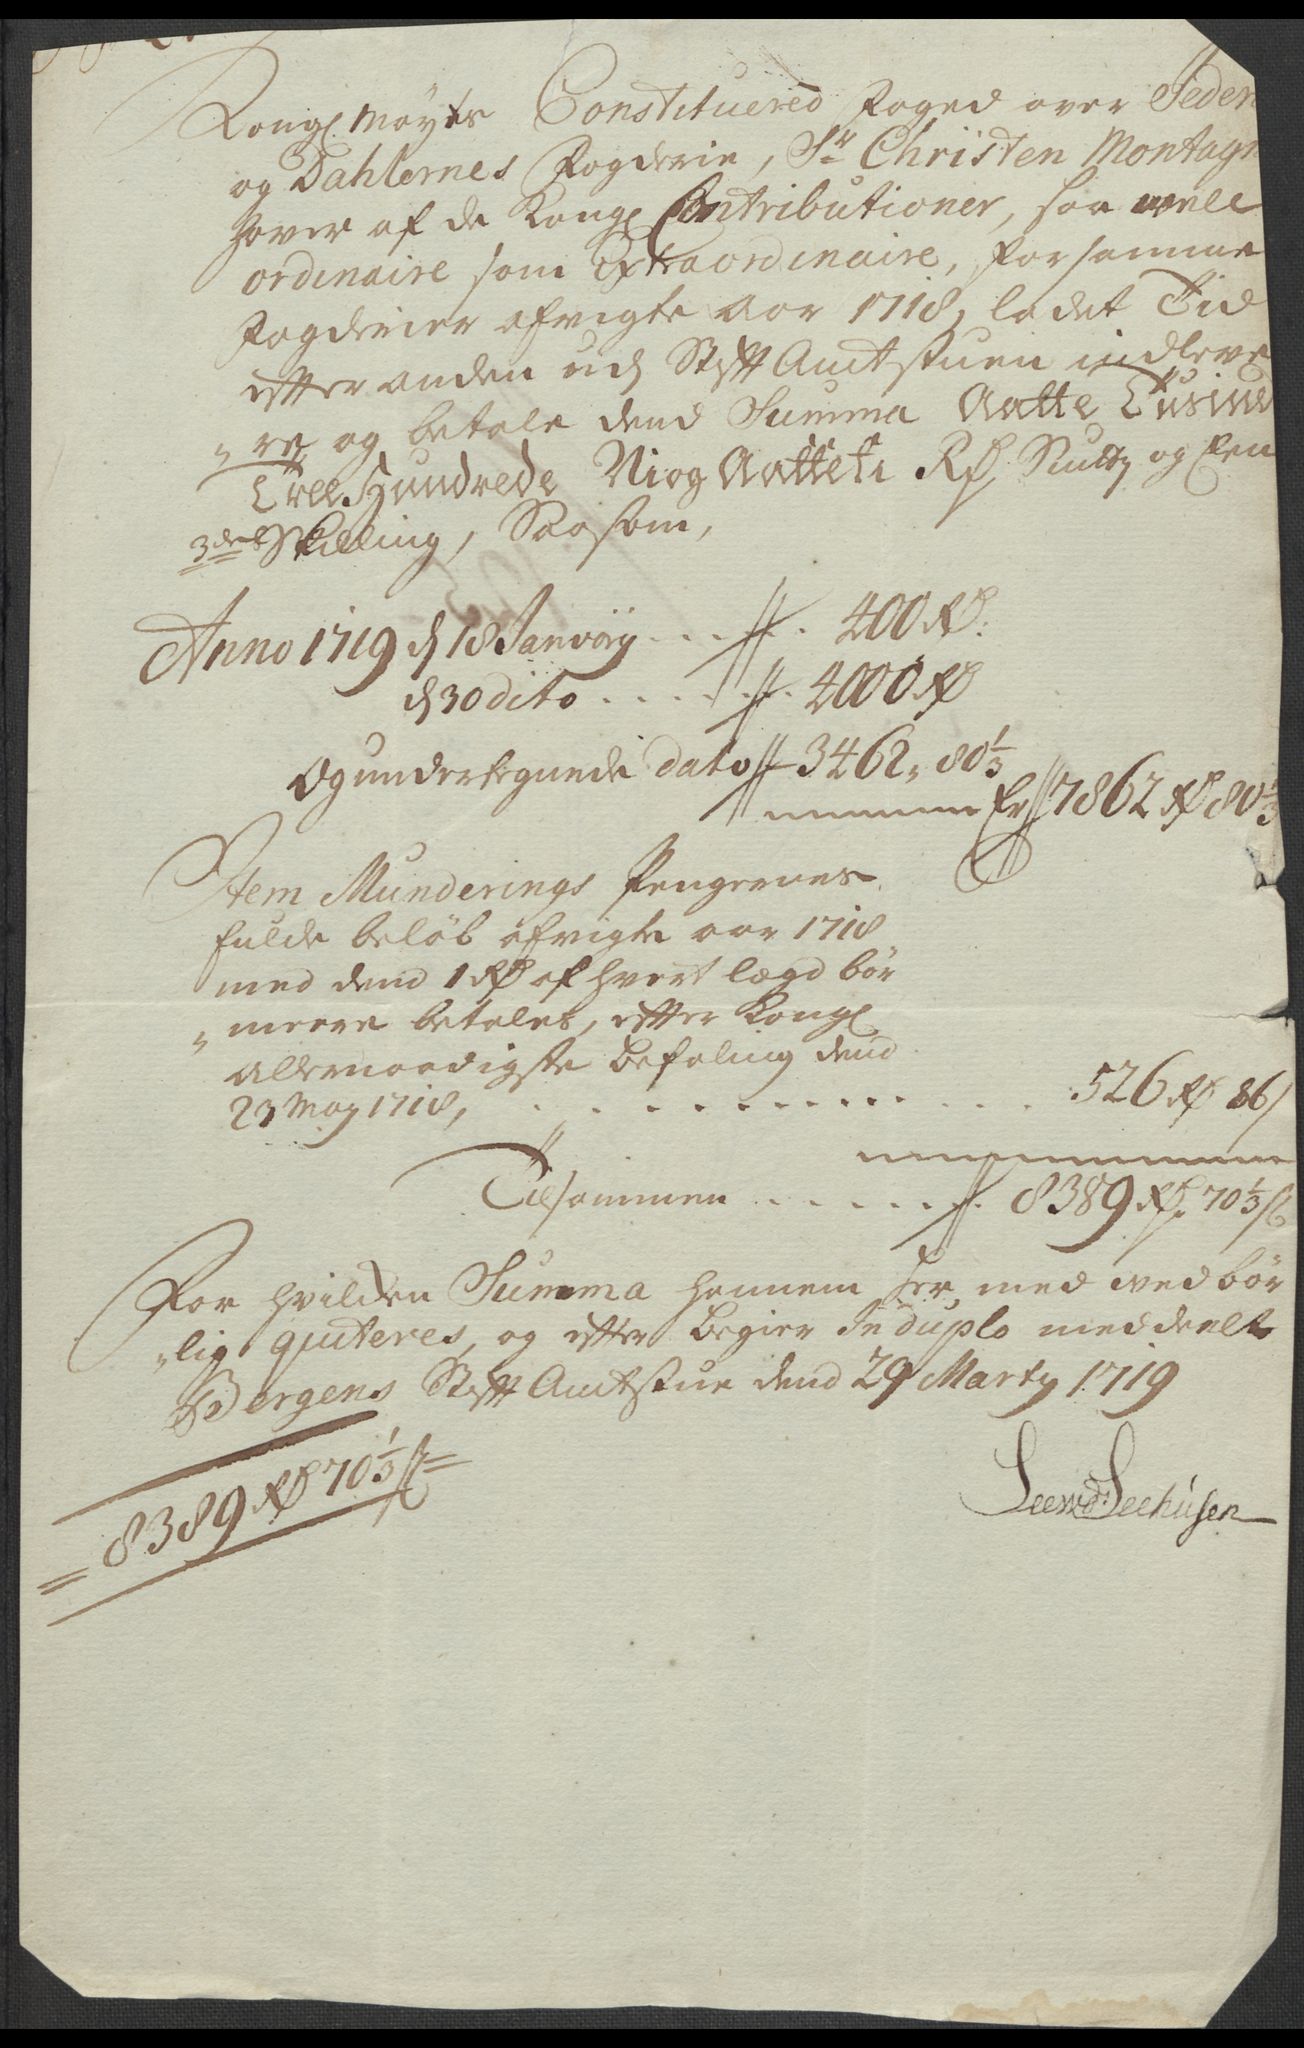 Kongl. Mayts Constituered Foged over Jeder
og Dahlernes Fogderie, Sr Christen Montagn
haver af de Kongl Contributioner, saa well
ordinaire som Extraordinaire, for samme
Fogderier afvigte aar 1718, ladet Tid
efter anden udj Stifft Amtstuen indleve
" re og betale dend Summa Aatte Tusinde
Tree Hundrede Niog Aattetj Rd og Een
3del Skilling, Saasom,
Anno 1719 d 18 Janvarij . . . // . 400 Rd.
d 30 dito . . . . . // . 4000 Rd
Og underskrefne dato // 3462 " 80 1/3
Er // 7862 Rd 80 1/3
Item Munderings Pengernes
fulde beløb afvigte aar 1718
med dend 1 Rd af hvert lægd bør
" meere betales, efter Kongl
Allernaadigste Befaling dend
23 May 1718, . . . . . . . . . . . . 526 Rd 86 s
Tilsammen . . . . . // . 8389 Rd. 70 1/3 s
For hvilden Summa hannem her med wedbør
" lig quiteres, og efter begier In duplo meddeelt
Bergens Stifft Amtstue dend 29 Marty 1719
= 8389 Rd 70 1/3 s =
Seehusen